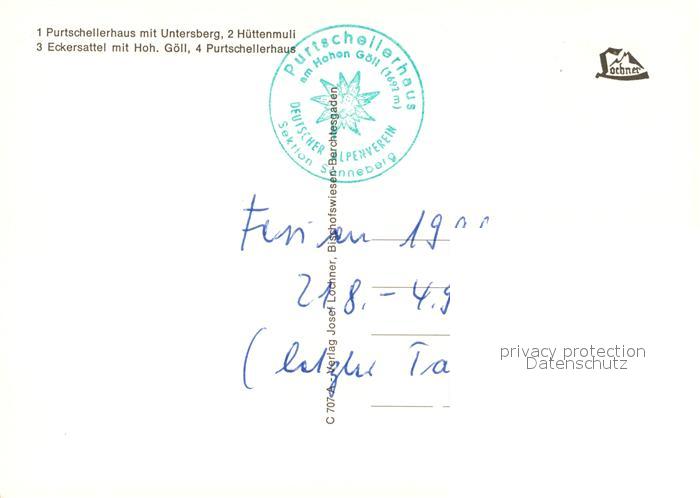 1 Purtschellerhaus mit Untersberg, 2 Hüttenmuli
3 Eckersattel mit Hoh. Göll, 4 Purtschellerhaus
Purtschellerhaus
am Hohen Göll (1692 m)
DEUTSCHER ALPENVEREIN
Sektion Sonneberg
Lochner
C 707 A - Verlag Josef Lochner, Bischofswiesen-Berchtesgaden
Ferien 19
21.8. - 4.9
( letzter Ta
privacy protection
Datenschutz